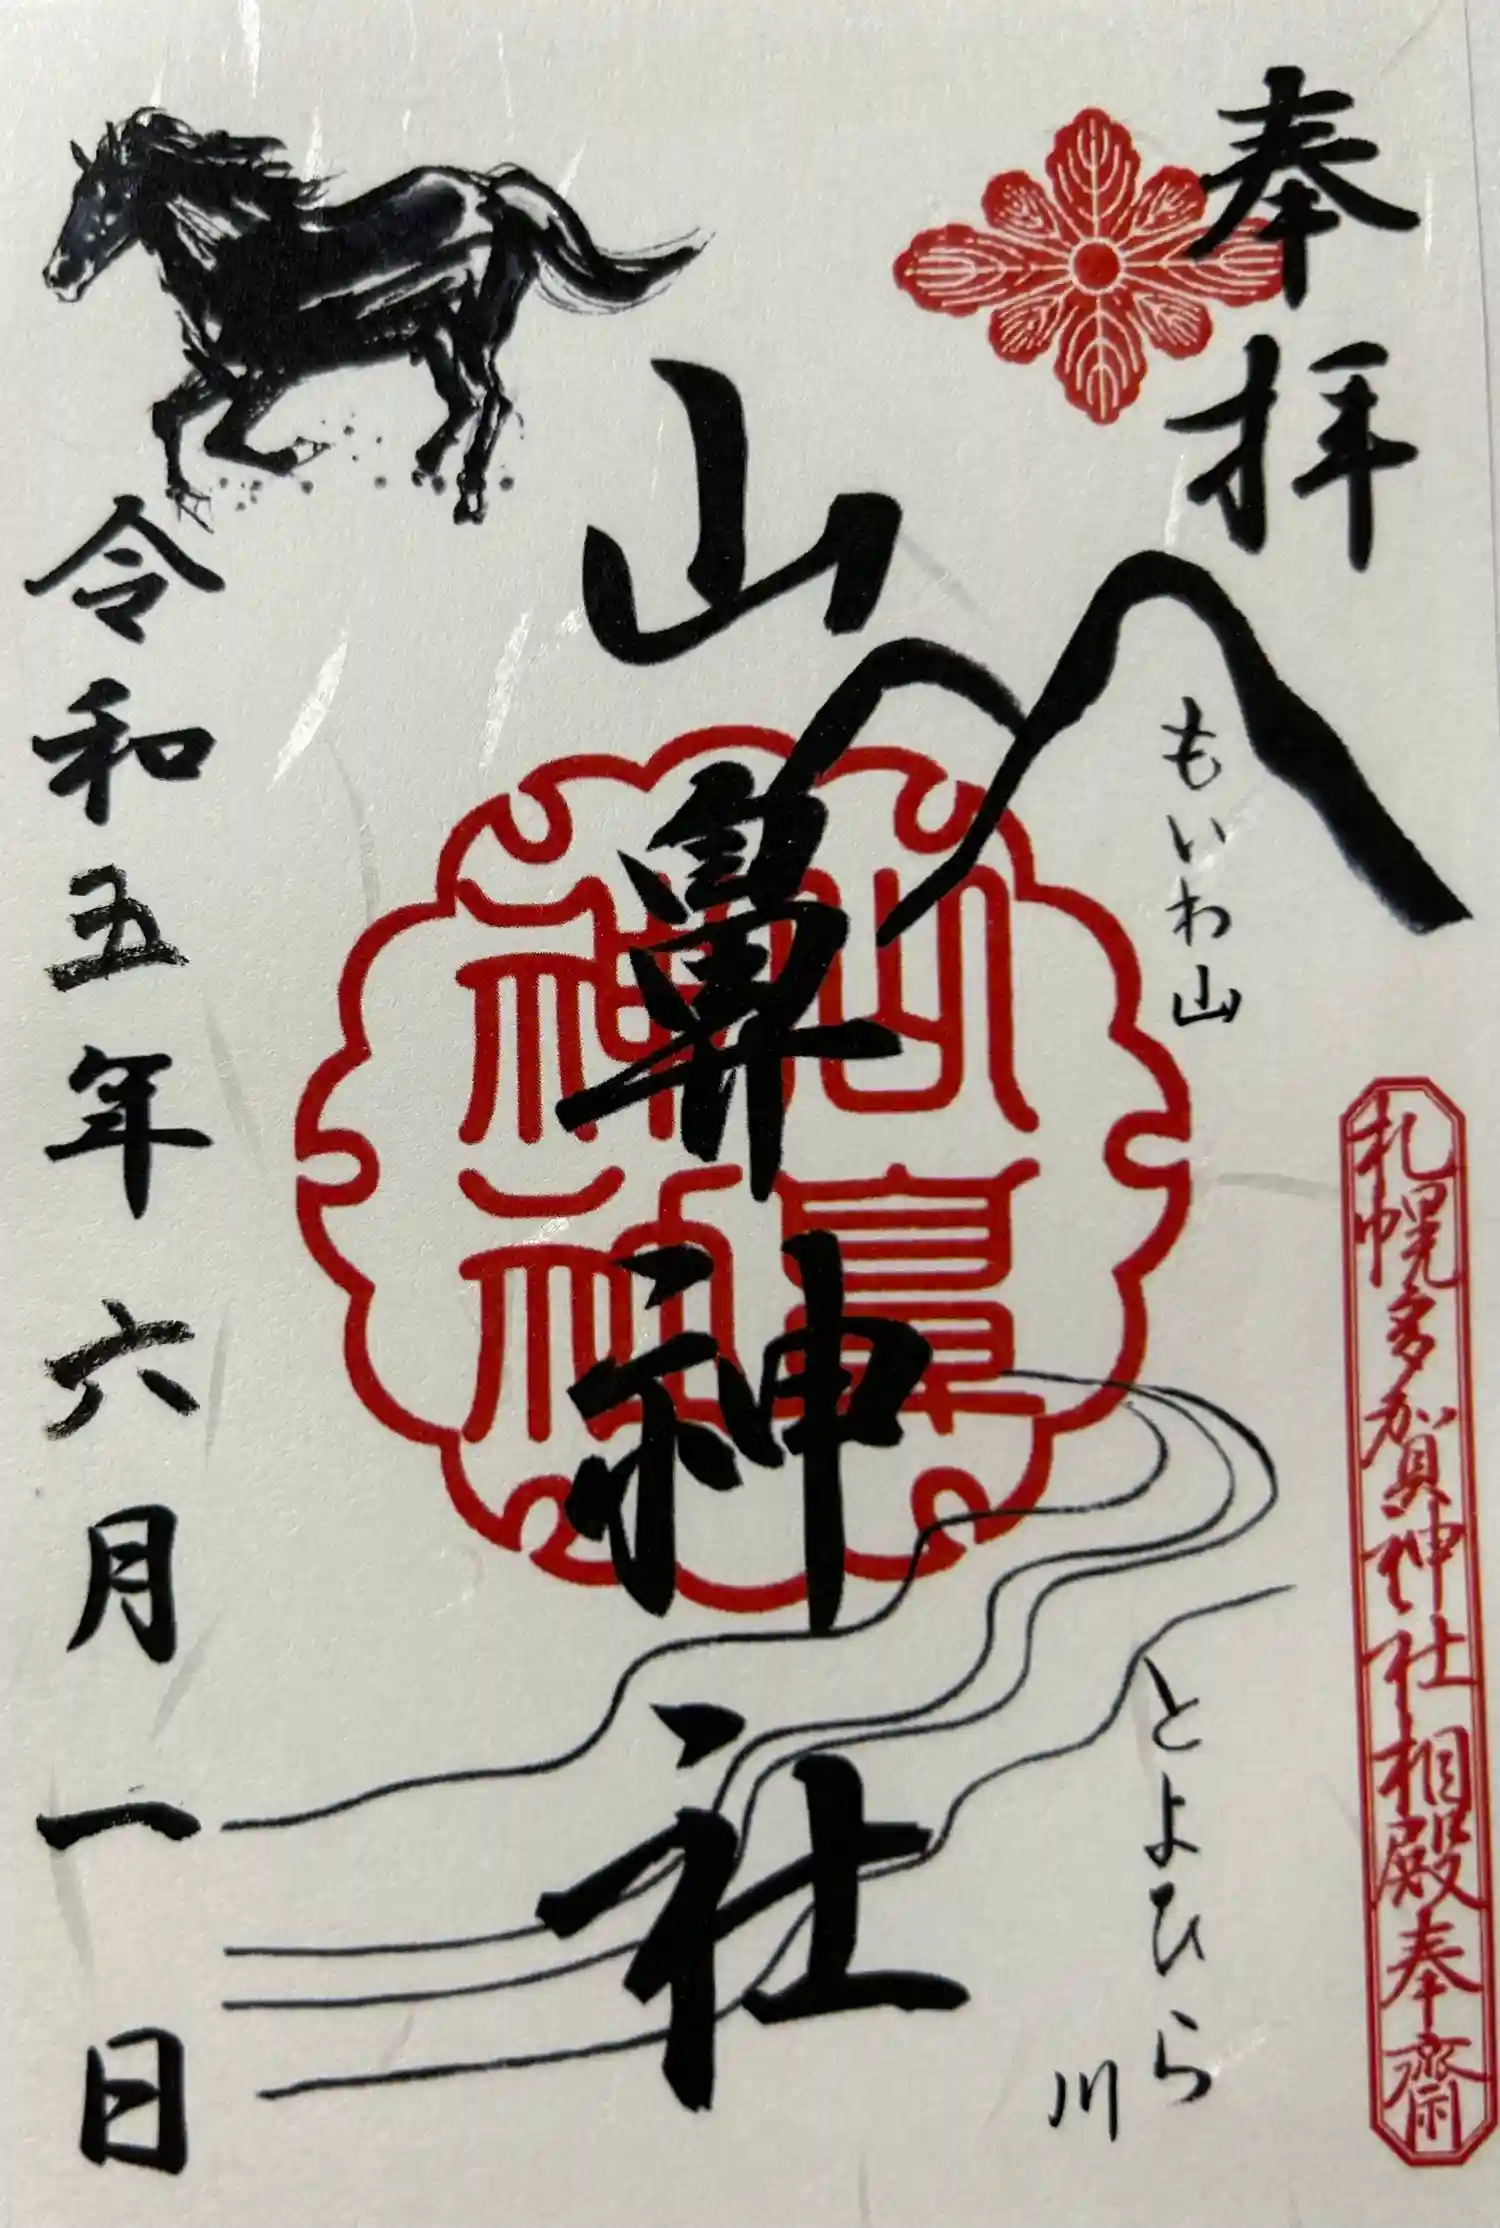 奉拝
もいわ山
札幌多賀神社相殿奉齋
とよひら
川
山鼻神社
山鼻神社
令和五年六月一日